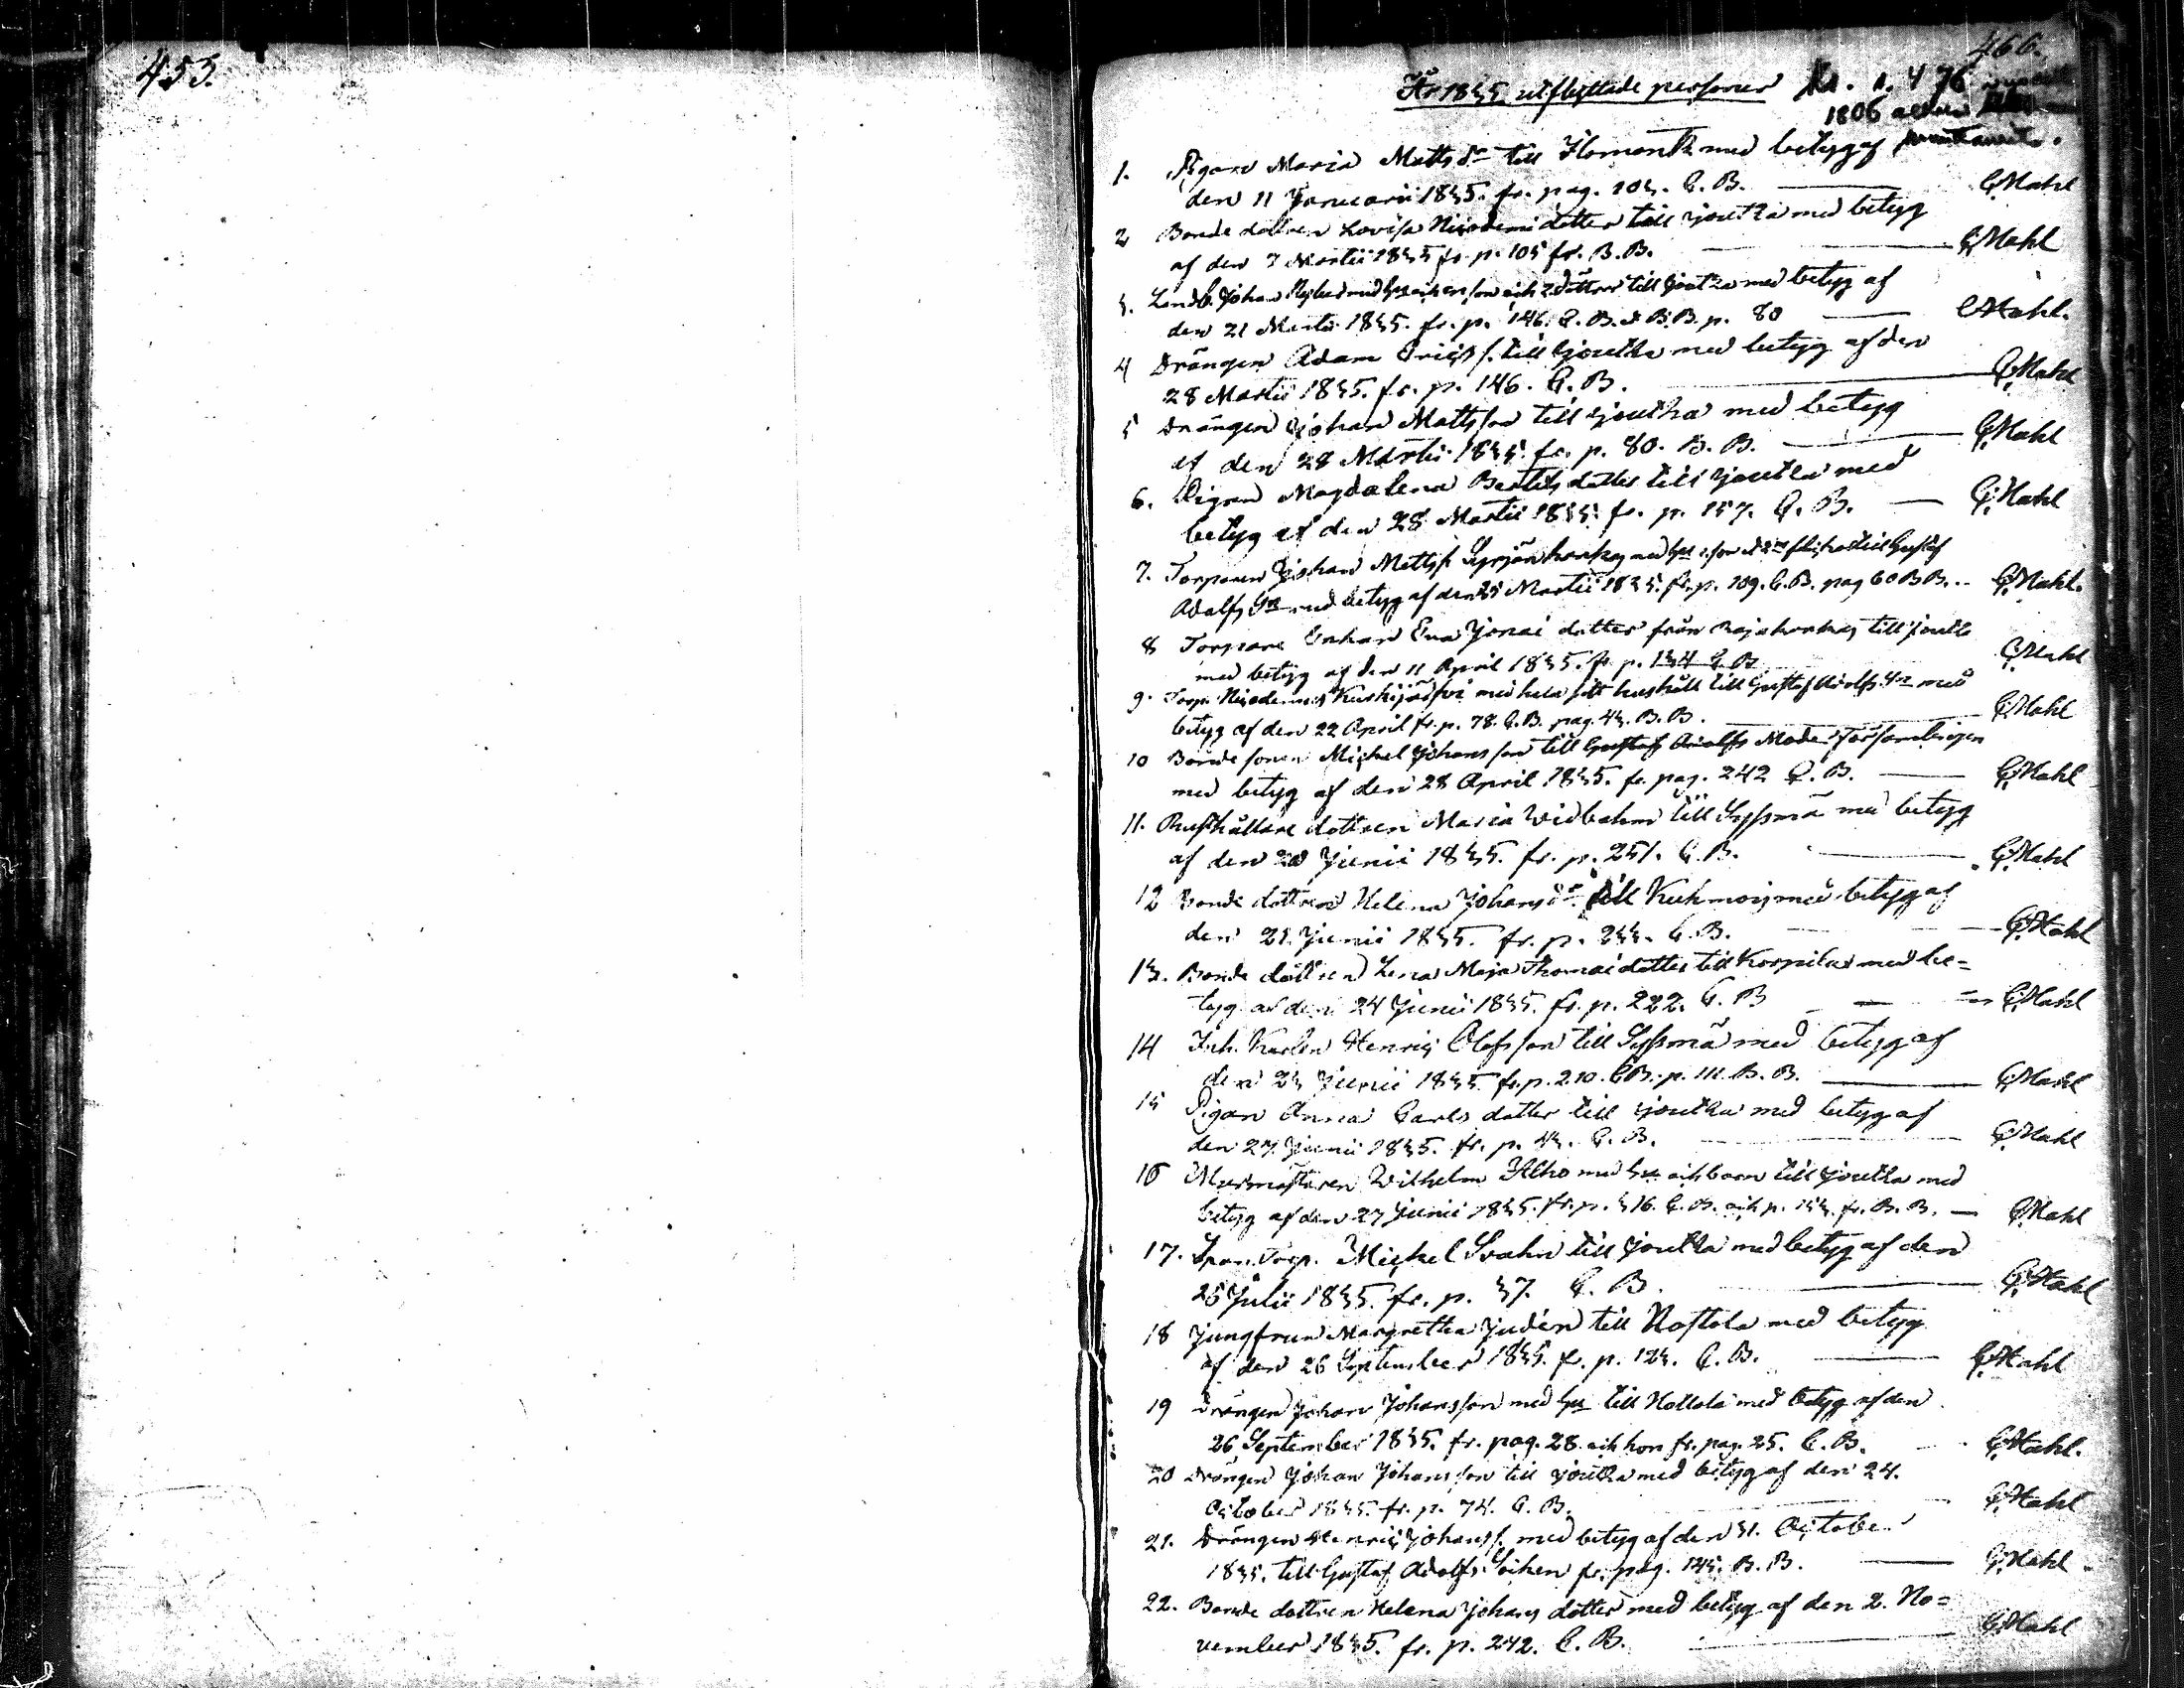 453.
466.
År 1835 utflyttade personer
1806
1. Pigan Maria Mattsdr till Ilomants med betyg af
den 11 Januarii 1835. fr. pag. 103. C. B. C. Stahl
2 Bonde dottren Lovisa Nicodemi dotter till Joutza med betyg
af den 7 Martii 1835 fr. p. 105 fr. B. B. C. Stahl
3. Johan med hu och en son och 2 döttrar till Joutza med betyg af
den 21 Martii 1835. fr. p. 146. C. B. & B. B. p. 80 C. Stahl.
4 Drängen Adam Erics s. till Joutza med betyg af den
28 Martii 1835. fr. p. 146. C. B. C. Stahl
5 Drängen Johan Mattsson till Joutza med betyg
af den 28 Martii 1835 fr. p. 80. B. B. C. Stahl
6. Pigan Magdalena Bertils dotter till Joutza med
betyg af den 28 Martii 1835. fr. p. 157. C. B. C. Stahl
7. Torparen Johan Matts s. med hu 1 son & 2ne flickor till Gustaf
Adolfs Sn med betyg af den 25 Martii 1835. fr. p. 109. C. B. pag 60 B B. C. Stahl.
8 Torpare Enkan Eva Jonai dotter från till Joutza
med betyg af den 11 April 1835. fr. p. 134 C. B. C. Stahl
9. Torp. Nicodemus Kurkijärfvi med hela sitt hushåll till Gustaf Adolfs Sn med
betyg af den 22 April fr. p. 78. C. B. pag. 43. B. B. C. Stahl
10 Bonde sonen Michel Johansson till Gustaf Adolfs Moder församlingen
med betyg af den 28 April 1835. fr. pag. 242 C. B. C. Stahl
11. Rusthållare dottren Maria Widbohm till Syssmä med betyg
af den 20 Junii 1835. fr. p. 251. C. B. C. Stahl
12 Bonde dottren Helena Johansdr till Kuhmois med betyg af
den 21. Junii 1835. fr. p. 233. C. B. C. Stahl
13. Bonde dottren Lena Maja Thomai dotter till Korpilax med be=
tyg af den 24 Junii 1835. fr. p. 222. C. B C. Stahl
14 Inh. Karlen Henric Olofsson till Syssmä med betyg af
den 23 Junii 1835 fr. p. 210. C B. p. 111. B. B. C. Stahl
15 Pigan Anna Carls dotter till Joutza med betyg af
den 27. Junii 1835. fr. p. 43. C. B. C. Stahl
16 Murmästaren Wilhelm Alho med hu och barn till Joutza med
betyg af den 27 Junii 1835. fr. p. 316. C. B. och p. 153. fr. B. B. C. Stahl
17. Torp. Michel Svahn till Joutza med betyg af den
25 Julii 1835. fr. p. 37. C. B. C. Stahl
18 Jungfrun Margretha Judén till Nastola med betyg
af den 26 September 1835. fr. p. 123. C. B. C. Stahl
19 Drängen Johan Johansson med hu till Hollola med betyg af den
26 September 1835. fr. pag. 28. och hon fr. pag. 25. C. B. C. Stahl.
20 Drängen Johan Johansson till Joutza med betyg af den 24.
October 1835. fr. p. 74. C. B. C. Stahl
21. Drängen Henric Johans s. med betyg af den 31. October
1835. till Gustaf Adolfs Socken fr. pag. 145. B. B. C. Stahl.
22. Bonde dottren Helena Johans dotter med betyg af den 2. No=
vember 1835. fr. p. 242. C. B. C. Stahl